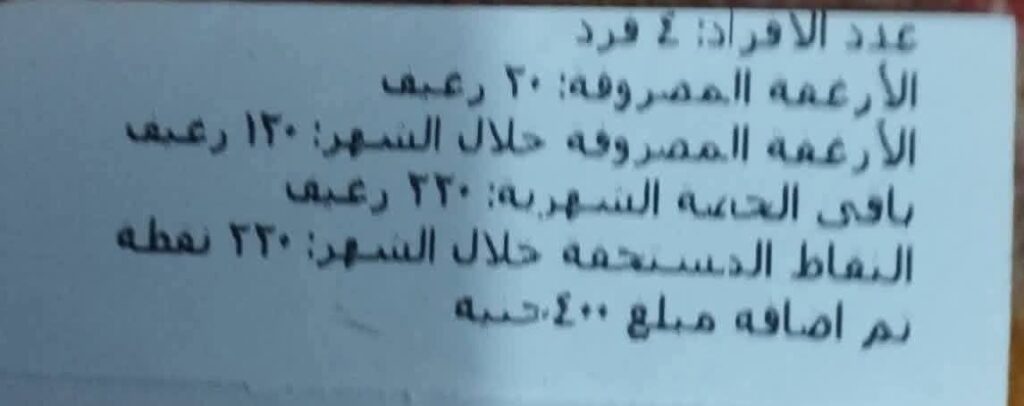 عدد الأفراد: ٤ فرد
الأرغفة المصروفة: ٢٠ رغيف
الأرغفة المصروفة خلال الشهر: ١٣٠ رغيف
باقى الحصة الشهرية: ٢٢٠ رغيف
النقاط المستحقة خلال الشهر: ٢٢٠ نقطه
تم اضافه مبلغ ٤٠٠ جنيه